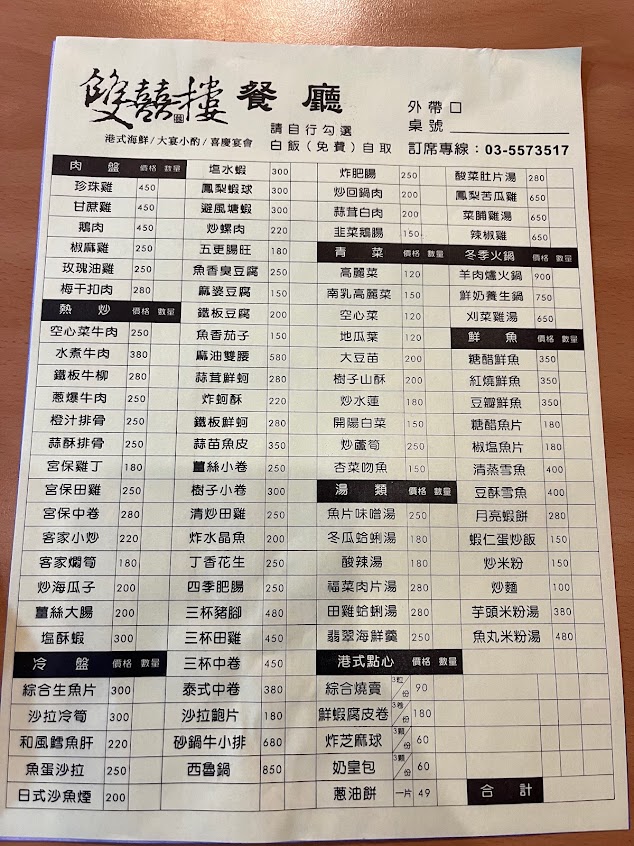 雙囍樓 餐廳
港式海鮮/大宴小酌/喜慶宴會
請自行勾選
白飯(免費)自取
外帶口
桌號
訂席專線：03-5573517
肉盤 價格 數量
珍珠雞 450
甘蔗雞 450
鵝肉 450
椒麻雞 250
玫瑰油雞 250
梅干扣肉 280
熱炒 價格 數量
空心菜牛肉 250
水煮牛肉 380
鐵板牛柳 280
蔥爆牛肉 250
橙汁排骨 250
蒜酥排骨 250
宮保雞丁 180
宮保田雞 250
宮保中卷 280
客家小炒 220
客家燜筍 180
炒海瓜子 200
薑絲大腸 200
塩酥蝦 300
冷盤 價格 數量
綜合生魚片 300
沙拉冷筍 300
和風鱈魚肝 220
魚蛋沙拉 250
日式沙魚煙 200
塩水蝦 300
鳳梨蝦球 300
避風塘蝦 300
炒螺肉 220
五更腸旺 180
魚香臭豆腐 250
麻婆豆腐 150
鐵板豆腐 200
魚香茄子 150
麻油雙腰 580
蒜茸鮮蚵 280
炸蚵酥 220
鐵板鮮蚵 280
蒜苗魚皮 350
薑絲小卷 300
樹子小卷 300
清炒田雞 250
炸水晶魚 200
丁香花生 250
四季肥腸 250
三杯豬腳 480
三杯田雞 450
三杯中卷 450
泰式中卷 380
沙拉鮑片 180
砂鍋牛小排 680
西魯鍋 850
炸肥腸 250
炒回鍋肉 200
蒜茸白肉 200
韭菜鵝腸 150
青菜 價格 數量
高麗菜 120
南乳高麗菜 150
空心菜 120
地瓜葉 120
大豆苗 200
樹子山酥 200
炒水蓮 180
開陽白菜 150
炒蘆筍 250
杏菜吻魚 150
湯類 價格 數量
魚片味噌湯 250
冬瓜蛤蜊湯 180
酸辣湯 180
福菜肉片湯 280
田雞蛤蜊湯 280
翡翠海鮮羹 250
港式點心 價格 數量
綜合燒賣 3粒/份 90
鮮蝦腐皮卷 3卷/份 180
炸芝麻球 3顆/份 60
奶皇包 3顆/份 60
蔥油餅 一片 49
酸菜肚片湯 280
鳳梨苦瓜雞 650
菜脯雞湯 650
辣椒雞 650
冬季火鍋 價格 數量
羊肉爐火鍋 900
鮮奶養生鍋 750
刈菜雞湯 650
鮮魚 價格 數量
糖醋鮮魚 350
紅燒鮮魚 350
豆瓣鮮魚 350
糖醋魚片 180
椒塩魚片 180
清蒸雪魚 400
豆酥雪魚 400
月亮蝦餅 280
蝦仁蛋炒飯 150
炒米粉 150
炒麵 100
芋頭米粉湯 380
魚丸米粉湯 480
合計